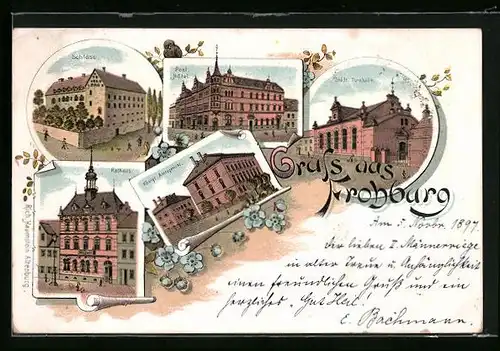 Schloss
Post
Hôtel
Städt. Turnhalle
Rathaus
Königl. Amtsgericht
Gruss aus
Frohburg
Am 5. Novbr. 1897.
Der lieben I. Männerriege
in alter Treue u. Anhänglichkeit
einen freundlichen Gruß und ein
herzliches "Gut Heil!"
E. Bachmann.
Altenburg.